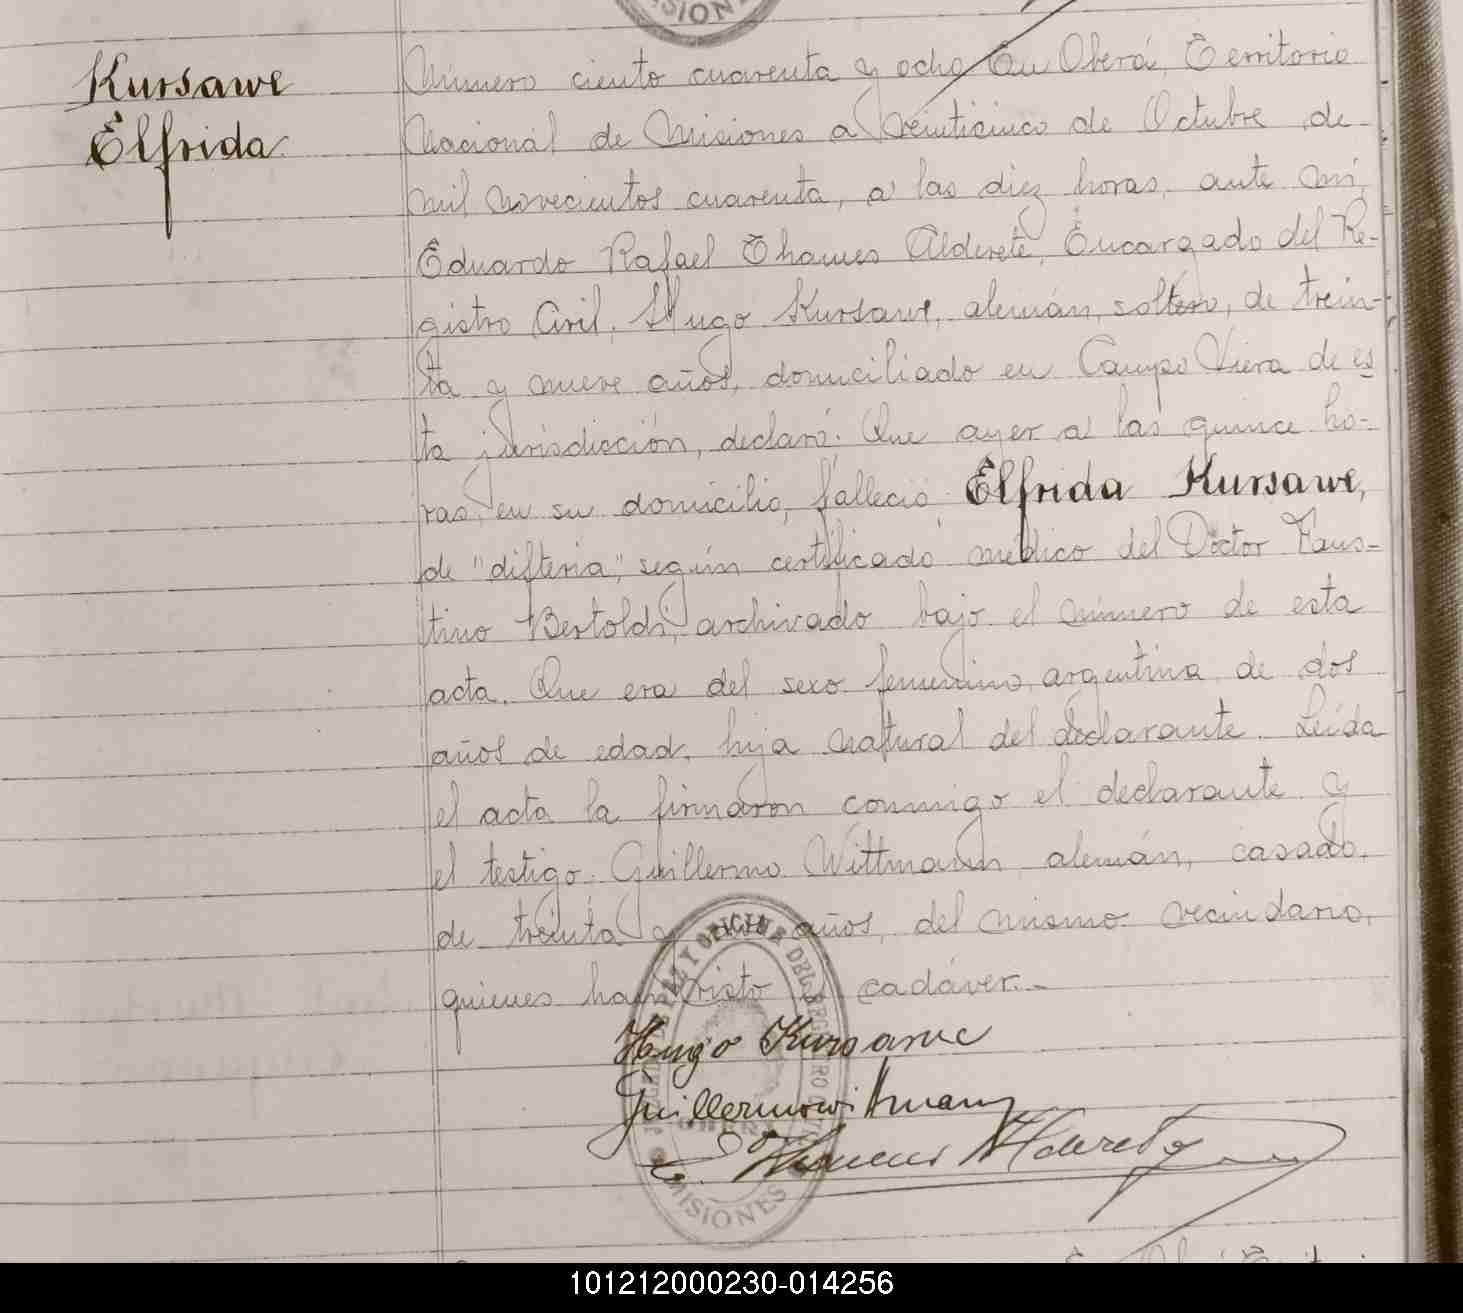 SIONE
Kursawe
Elfrida
Número ciento cuarenta y ocho En Oberá, Territorio
Nacional de Misiones a veinticinco de Octubre de
mil novecientos cuarenta, a las diez horas, ante mí,
Eduardo Rafael Thames Alderete, Encargado del Re-
gistro Civil, Hugo Kursawe, alemán, soltero, de trein-
ta y nueve años, domiciliado en Campo Viera de es
ta jurisdicción, declaró: Que ayer a las quince ho-
ras, en su domicilio, falleció Elfrida Kursawe,
de "difteria", según certificado médico del Doctor Faus-
tino Bertoldi, archivado bajo el número de esta
acta. Que era del sexo femenino, argentina, de dos
años de edad, hija natural del declarante. Leída
el acta la firmaron conmigo el declarante y
el testigo: Guillermo Wittmann, alemán, casado,
de treinta y años, del mismo vecindario,
quienes han visto el cadáver.-
Hugo Kursawe
Guillermo Wittmann
Thames Alderete
PAZ Y OFICINA DEL REGISTRO
MISIONES
101212000230-014256